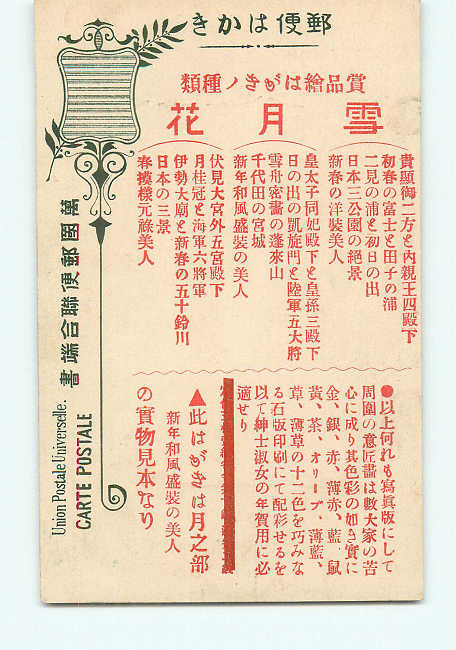 郵便はかき
賞品繪はがきノ種類
雪
月
花
貴顯御二方と內親王四殿下
初春の富士と田子の浦
二見の浦と初日の出
日本三公園の絶景
新春の洋裝美人
皇太子同妃殿下と皇孫三殿下
日の出の凱旋門と陸軍五大將
雪舟密畵の蓬來山
千代田の宮城
新年和風盛裝の美人
伏見大宮外五宮殿下
月桂冠と海軍六將軍
伊勢大廟と新春の五十鈴川
日本の三景
春摸樣元祿美人
●以上何れも寫眞版にして
周圍の意匠畵は數大家の苦
心に成り其色彩の如き實に
金、銀、赤、薄赤、藍、鼠
黃、茶、オリーブ、薄藍、
草、薄草の十二色を巧みな
る石版印刷にて配彩せるを
以て紳士淑女の年賀用に必
適せり
▲此はがきは月之部
新年和風盛裝の美人
の實物見本なり
萬國郵便聯合端書
Union Postale Universelle.
CARTE POSTALE